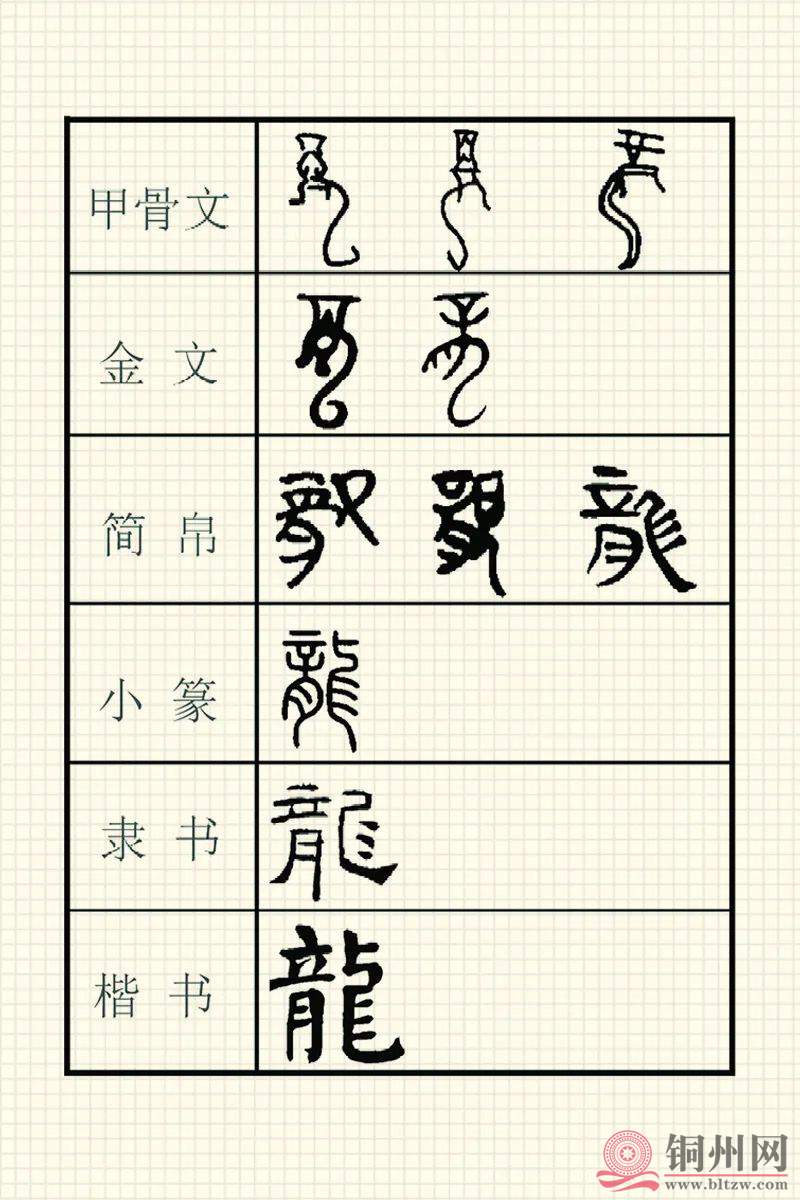 甲骨文
金 文
简 帛 龍
小 篆 龍
隶 书 龍
楷 书 龍
铜州网
www.bltzw.com